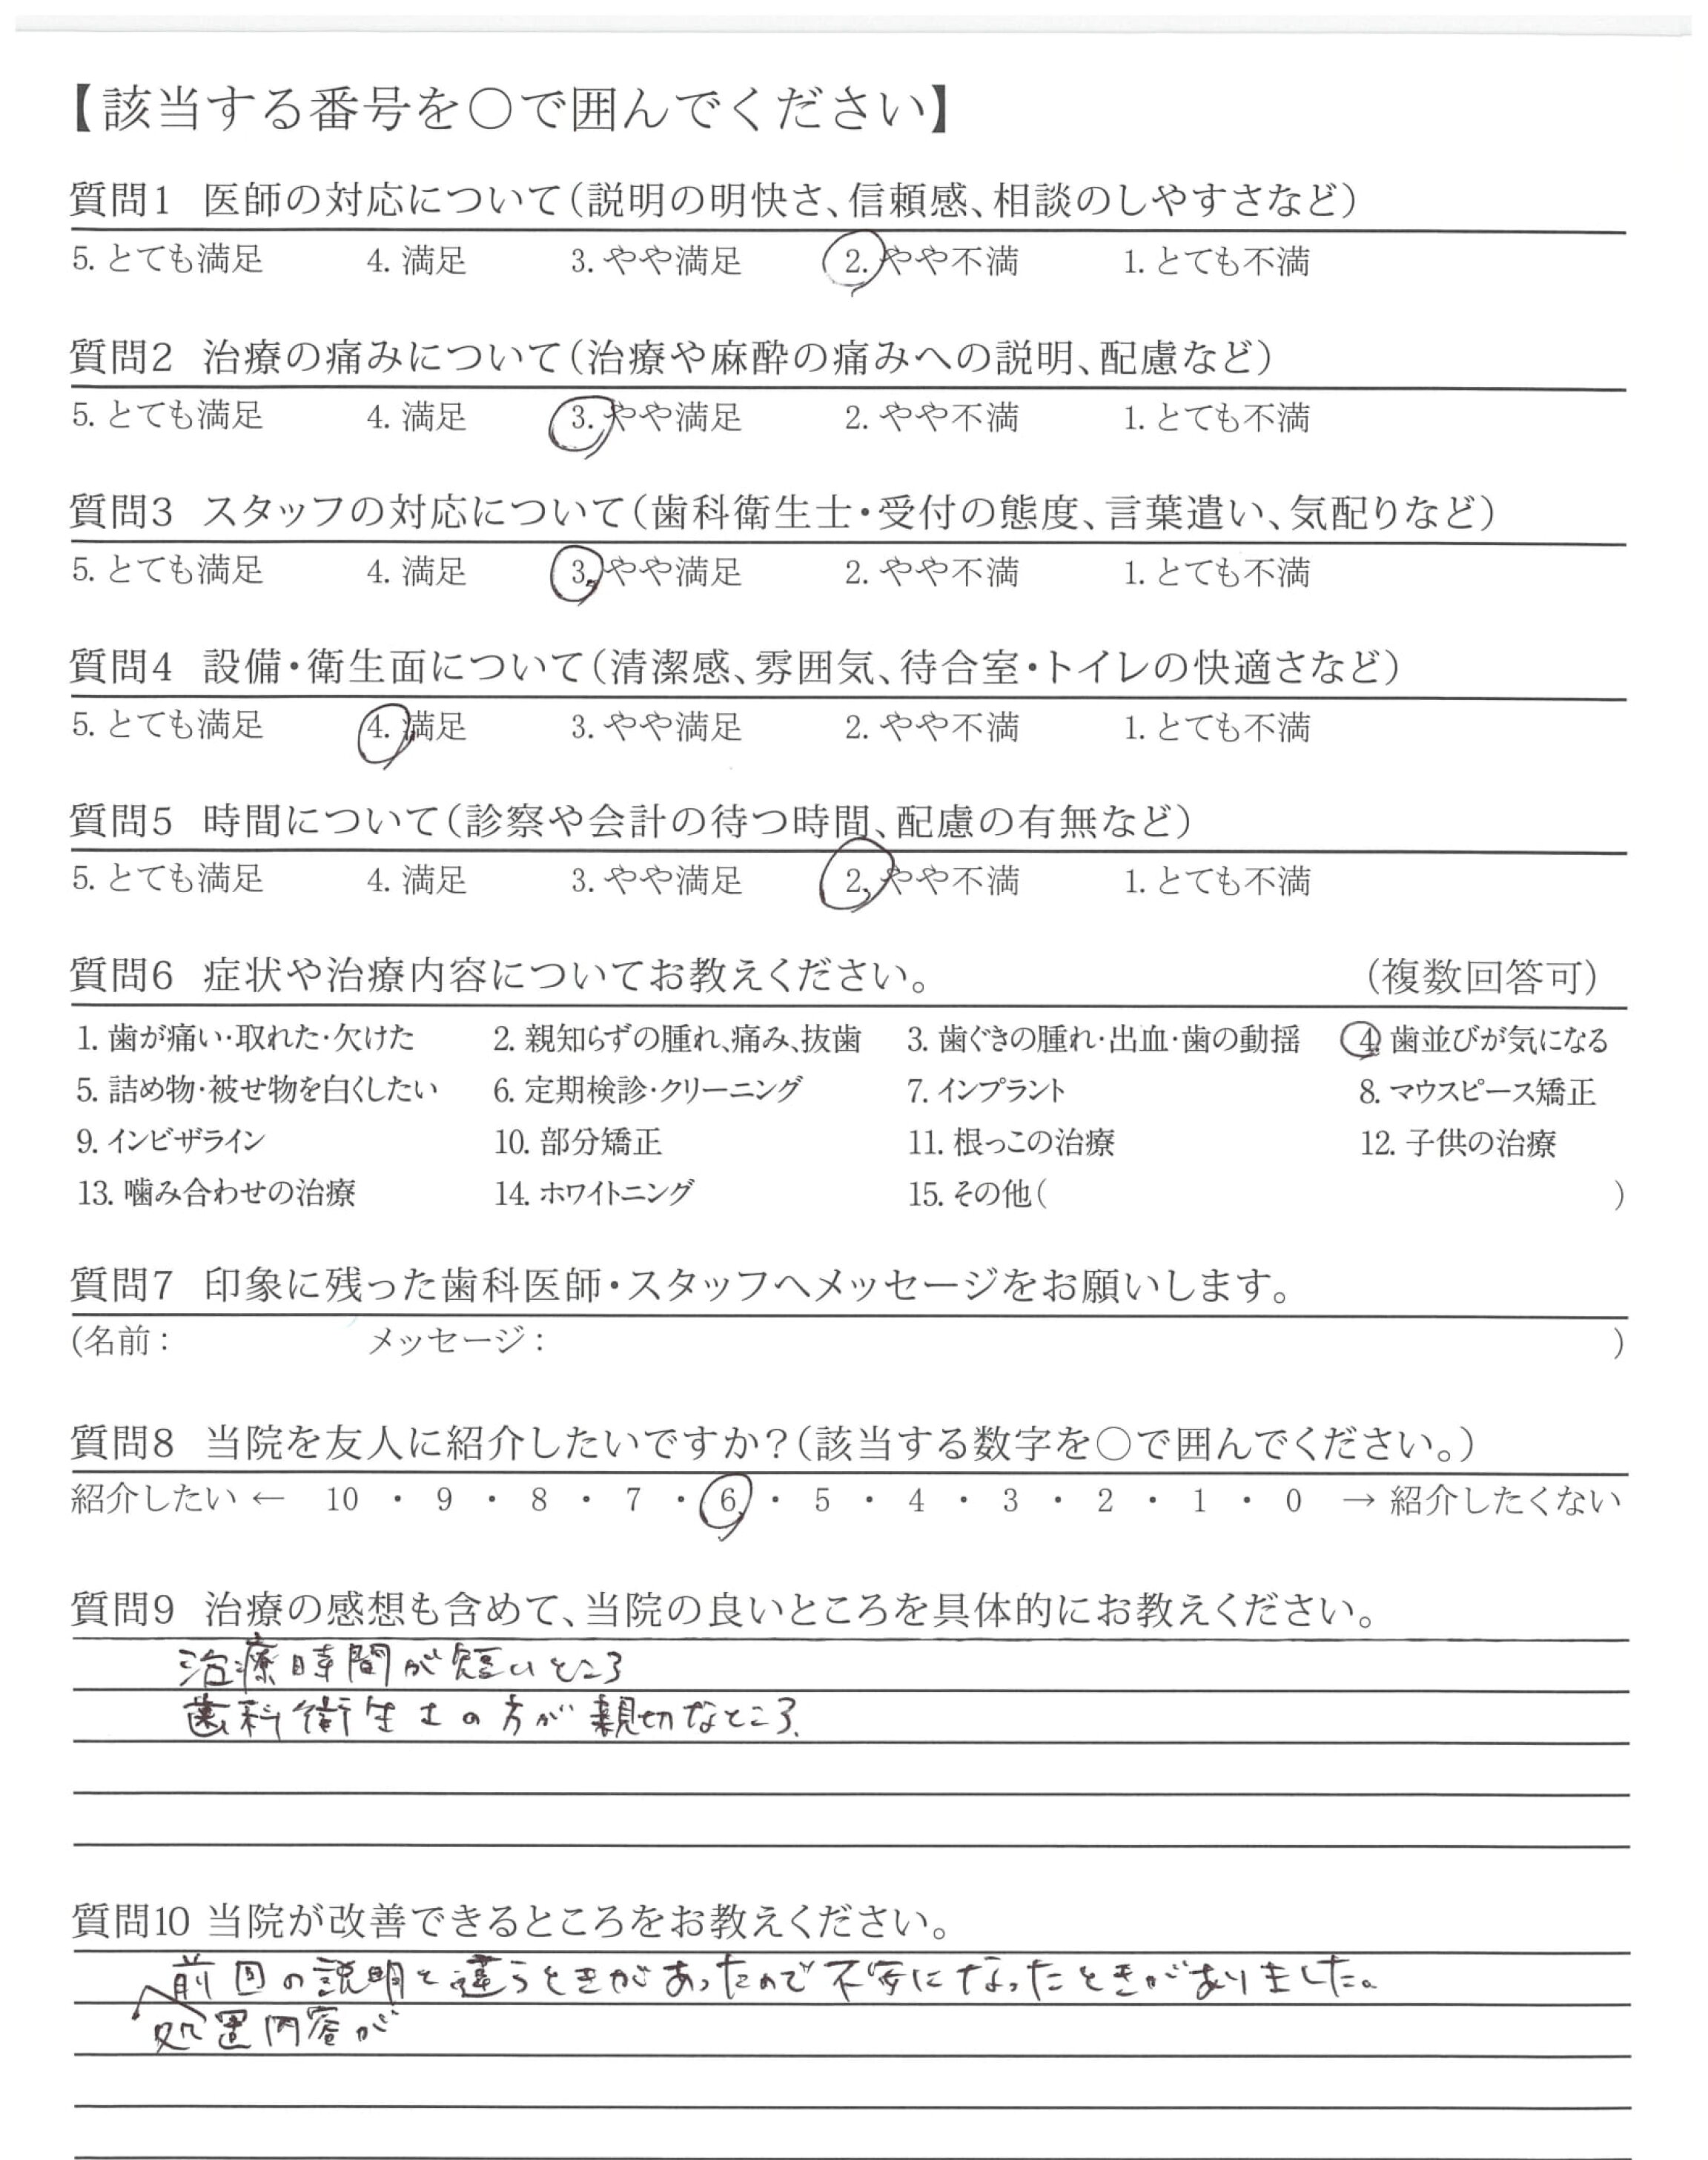 【該当する番号を〇で囲んでください】
質問1 医師の対応について(説明の明快さ、信頼感、相談のしやすさなど)
5. とても満足 4. 満足 3. やや満足 2. やや不満 1. とても不満
質問2 治療の痛みについて(治療や麻酔の痛みへの説明、配慮など)
5. とても満足 4. 満足 3. やや満足 2. やや不満 1. とても不満
質問3 スタッフの対応について(歯科衛生士・受付の態度、言葉遣い、気配りなど)
5. とても満足 4. 満足 3. やや満足 2. やや不満 1. とても不満
質問4 設備・衛生面について(清潔感、雰囲気、待合室・トイレの快適さなど)
5. とても満足 4. 満足 3. やや満足 2. やや不満 1. とても不満
質問5 時間について(診察や会計の待つ時間、配慮の有無など)
5. とても満足 4. 満足 3. やや満足 2. やや不満 1. とても不満
質問6 症状や治療内容についてお教えください。 (複数回答可)
1. 歯が痛い・取れた・欠けた 2. 親知らずの腫れ、痛み、抜歯 3. 歯ぐきの腫れ・出血・歯の動揺 4. 歯並びが気になる
5. 詰め物・被せ物を白くしたい 6. 定期検診・クリーニング 7. インプラント 8. マウスピース矯正
9. インビザライン 10. 部分矯正 11. 根っこの治療 12. 子供の治療
13. 噛み合わせの治療 14. ホワイトニング 15. その他( )
質問7 印象に残った歯科医師・スタッフへメッセージをお願いします。
(名前: メッセージ: )
質問8 当院を友人に紹介したいですか?(該当する数字を〇で囲んでください。)
紹介したい ← 10 ・ 9 ・ 8 ・ 7 ・ 6 ・ 5 ・ 4 ・ 3 ・ 2 ・ 1 ・ 0 → 紹介したくない
質問9 治療の感想も含めて、当院の良いところを具体的にお教えください。
治療時間が短いところ
歯科衛生士の方が親切なところ。
質問10 当院が改善できるところをお教えください。
前回の説明と違うときがあったので不安になったときがありました。
処置内容が